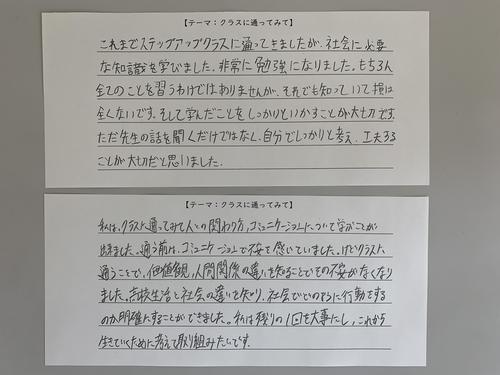 【テーマ：クラスに通ってみて】
これまでステップアップクラスに通ってきましたが、社会に必要
な知識を学びました。非常に勉強になりました。もちろん
全てのことを習うわけではありませんが、それでも知っていて損は
全くないです。そして学んだことをしっかりといかすことが大切です。
ただ先生の話を聞くだけではなく、自分でしっかりと考え、工夫する
ことが大切だと思いました。
【テーマ：クラスに通ってみて】
私は、クラスに通ってみて人との関わり方、コミュニケーションについて学ぶことが
出来ました。通う前は、コミュニケーションで不安を感じていました。けどクラスに
通うことで、価値観、人間関係の違いを知ることでその不安がなくなり
ました。高校生活と社会の違いを知り、社会でどのように行動をする
のか明確にすることができました。私は残りの1回を大事にし、これから
生きていくために考えて取り組みたいです。